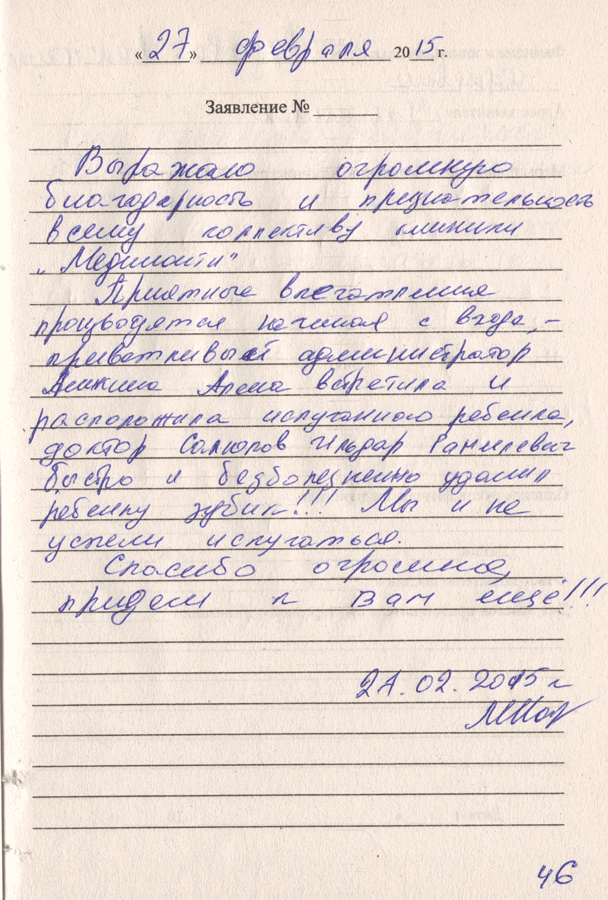 « 27 » февраля 2015 г.
Заявление №
Выражаю огромную
благодарность и признательность
всему коллективу клиники
„Медиманти"
Приятные впечатления
производятся начиная с входа, –
приветливый администратор
Алена встретила и
расположила испуганного ребенка,
доктор Ильдар Рамилевич
быстро и безболезненно удалил
ребенку зубик!!! Мы и не
успели испугаться.
Спасибо огромное,
придем к Вам ещё!!!
27.02.2015 г
46